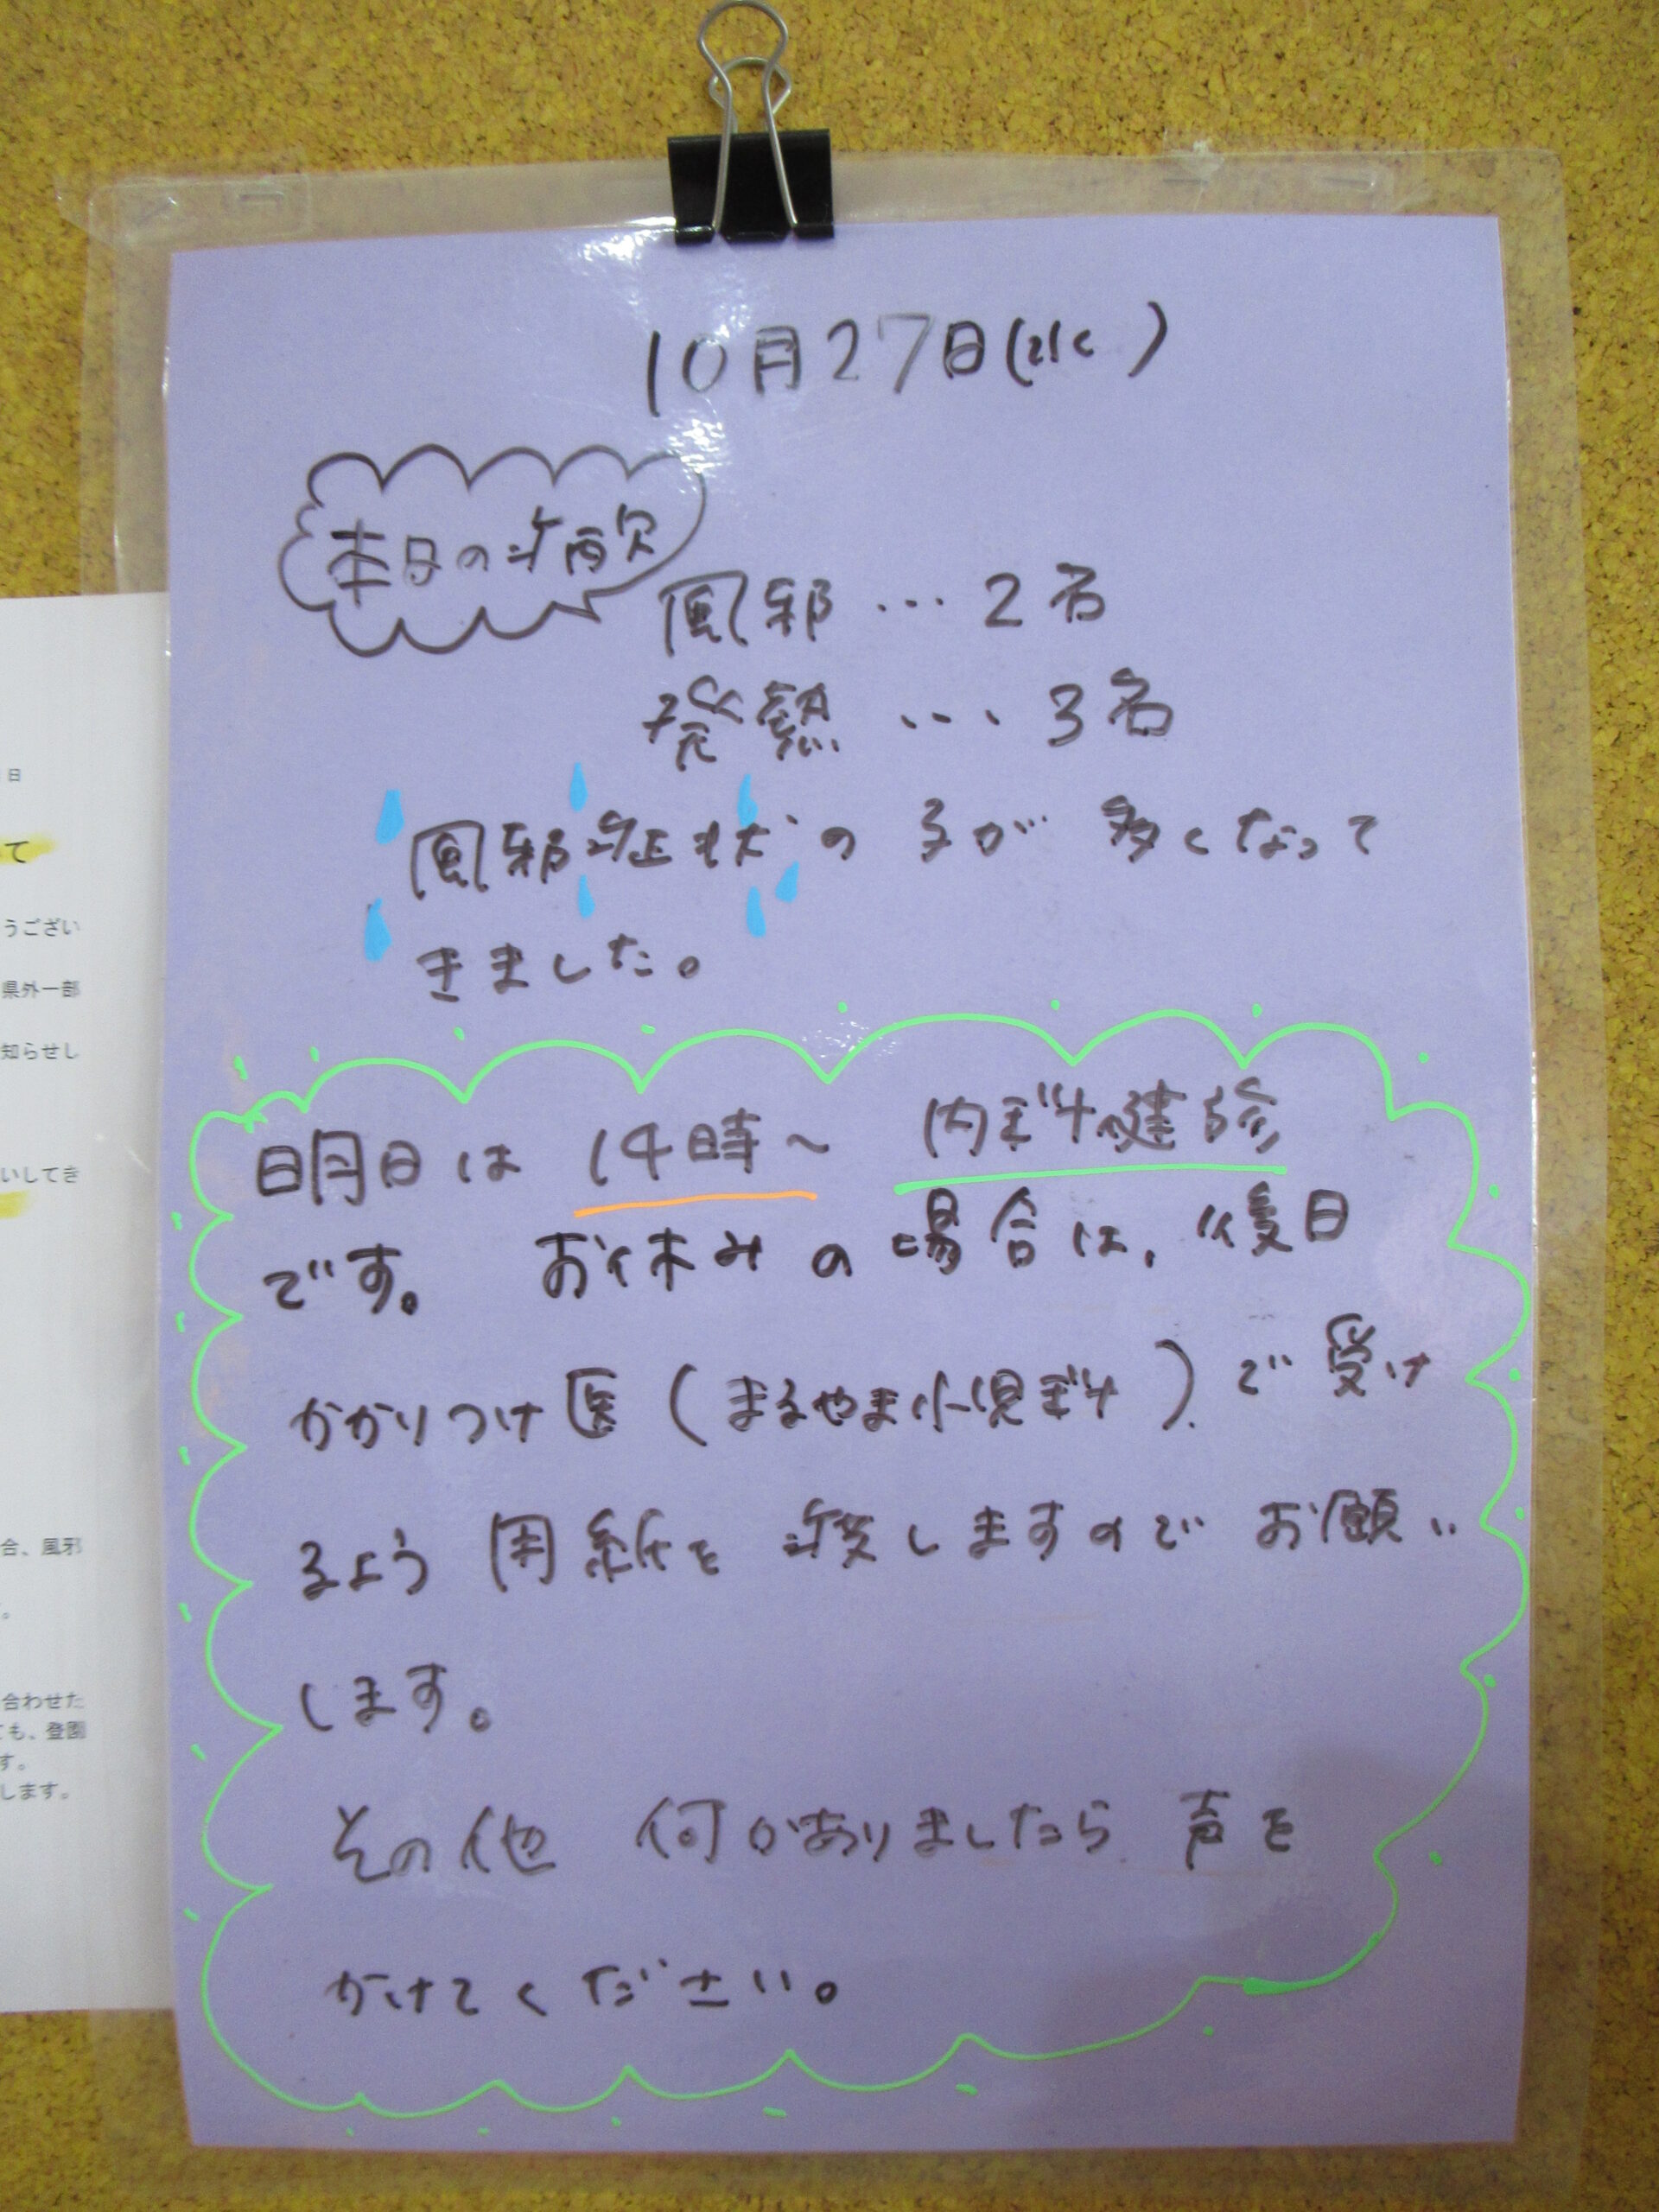 10月27日(水)
本日の病欠
風邪…2名
発熱…3名
風邪症状の子が多くなって
きました。
明日は 14時~ 内科健診
です。お休みの場合は、後日
かかりつけ医(まるやま小児科)で受け
るよう用紙を渡しますのでお願い
します。
その他 何かありましたら声を
かけてください。
日
て
うござい
県外一部
知らせし
いしてき
合、風邪
。
合わせた
ても、登園
す。
します。